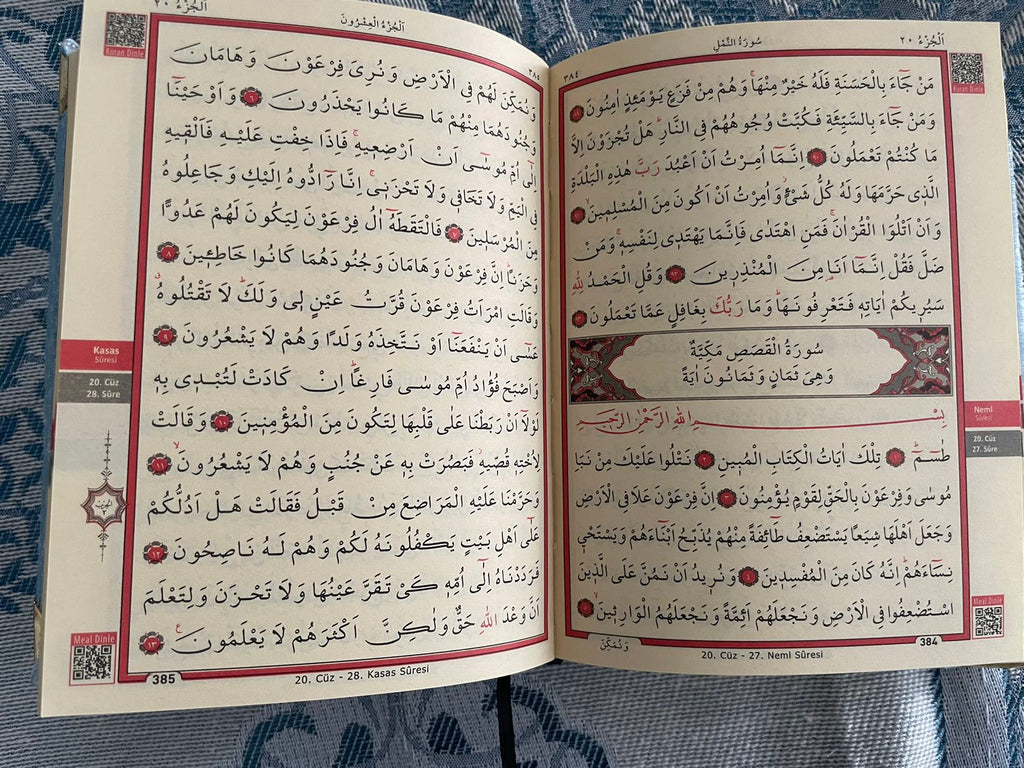 اَلْجُزْءُ ٢٠
سُورَةُ النَّمْلِ
٣٨٤
Kuran Dinle
مَنْ جَٓاءَ بِالْحَسَنَةِ فَلَهُ خَيْرٌ مِنْهَاۚ وَهُمْ مِنْ فَزَعٍ يَوْمَئِذٍ اٰمِنُونَ ﴿٨٩﴾
وَمَنْ جَٓاءَ بِالسَّيِّئَةِ فَكُبَّتْ وُجُوهُهُمْ فِى النَّارِۜ هَلْ تُجْزَوْنَ اِلَّا
مَا كُنْتُمْ تَعْمَلُونَ ﴿٩٠﴾ اِنَّمَٓا اُمِرْتُ اَنْ اَعْبُدَ رَبَّ هٰذِهِ الْبَلْدَةِ
الَّذٖى حَرَّمَهَا وَلَهُ كُلُّ شَىْءٍۘ وَاُمِرْتُ اَنْ اَكُونَ مِنَ الْمُسْلِمٖينَۙ ﴿٩١﴾
وَاَنْ اَتْلُوَا الْقُرْاٰنَۚ فَمَنِ اهْتَدٰى فَاِنَّمَا يَهْتَدٖى لِنَفْسِهٖۚ وَمَنْ
ضَلَّ فَقُلْ اِنَّمَٓا اَنَا مِنَ الْمُنْذِرٖينَ ﴿٩٢﴾ وَقُلِ الْحَمْدُ لِلّٰهِ
سَيُرٖيكُمْ اٰيَاتِهٖ فَتَعْرِفُونَهَاۜ وَمَا رَبُّكَ بِغَافِلٍ عَمَّا تَعْمَلُونَ ﴿٩٣﴾
سُورَةُ الْقَصَصِ مَكِّيَّةٌ
وَهِىَ ثَمَانٍ وَثَمَانُونَ اٰيَةً
بِسْمِ اللهِ الرَّحْمٰنِ الرَّحٖيمِ
طٰسٓمٓ ﴿١﴾ تِلْكَ اٰيَاتُ الْكِتَابِ الْمُبٖينِ ﴿٢﴾ نَتْلُوا عَلَيْكَ مِنْ نَبَاِ
مُوسٰى وَفِرْعَوْنَ بِالْحَقِّ لِقَوْمٍ يُؤْمِنُونَ ﴿٣﴾ اِنَّ فِرْعَوْنَ عَلَا فِى الْاَرْضِ
وَجَعَلَ اَهْلَهَا شِيَعًا يَسْتَضْعِفُ طَٓائِفَةً مِنْهُمْ يُذَبِّحُ اَبْنَٓاءَهُمْ وَيَسْتَحْيٖ
نِسَٓاءَهُمْۜ اِنَّهُ كَانَ مِنَ الْمُفْسِدٖينَ ﴿٤﴾ وَنُرٖيدُ اَنْ نَمُنَّ عَلَى الَّذٖينَ
اسْتُضْعِفُوا فِى الْاَرْضِ وَنَجْعَلَهُمْ اَئِمَّةً وَنَجْعَلَهُمُ الْوَارِثٖينَۙ ﴿٥﴾
Neml
Sûresi
20. Cüz
27. Sûre
Meal Dinle
وَنُمَكِّنَ
20. Cüz - 27. Neml Sûresi
384
اَلْجُزْءُ ٢٠
اَلْجُزْءُ الْعِشْرُونَ
٣٨٥
Kuran Dinle
وَنُمَكِّنَ لَهُمْ فِى الْاَرْضِ وَنُرِىَ فِرْعَوْنَ وَهَامَانَ
وَجُنُودَهُمَا مِنْهُمْ مَا كَانُوا يَحْذَرُونَ ﴿٦﴾ وَاَوْحَيْنَٓا
اِلٰٓى اُمِّ مُوسٰٓى اَنْ اَرْضِعٖيهِۚ فَاِذَا خِفْتِ عَلَيْهِ فَاَلْقٖيهِ
فِى الْيَمِّ وَلَا تَخَافٖى وَلَا تَحْزَنٖىۚ اِنَّا رَٓادُّوهُ اِلَيْكِ وَجَاعِلُوهُ
مِنَ الْمُرْسَلٖينَ ﴿٧﴾ فَالْتَقَطَهُٓ اٰلُ فِرْعَوْنَ لِيَكُونَ لَهُمْ عَدُوًّا
وَحَزَنًاۜ اِنَّ فِرْعَوْنَ وَهَامَانَ وَجُنُودَهُمَا كَانُوا خَاطِـٖٔينَ ﴿٨﴾
وَقَالَتِ امْرَاَتُ فِرْعَوْنَ قُرَّتُ عَيْنٍ لٖى وَلَكَۜ لَا تَقْتُلُوهُۗ
عَسٰٓى اَنْ يَنْفَعَنَٓا اَوْ نَتَّخِذَهُ وَلَدًا وَهُمْ لَا يَشْعُرُونَ ﴿٩﴾
وَاَصْبَحَ فُؤٰادُ اُمِّ مُوسٰى فَارِغًاۜ اِنْ كَادَتْ لَتُبْدٖى بِهٖ
لَوْلَٓا اَنْ رَبَطْنَا عَلٰى قَلْبِهَا لِتَكُونَ مِنَ الْمُؤْمِنٖينَ ﴿١٠﴾ وَقَالَتْ
لِاُخْتِهٖ قُصّٖيهِۘ فَبَصُرَتْ بِهٖ عَنْ جُنُبٍ وَهُمْ لَا يَشْعُرُونَۙ ﴿١١﴾
وَحَرَّمْنَا عَلَيْهِ الْمَرَاضِعَ مِنْ قَبْلُ فَقَالَتْ هَلْ اَدُلُّكُمْ
عَلٰٓى اَهْلِ بَيْتٍ يَكْفُلُونَهُ لَكُمْ وَهُمْ لَهُ نَاصِحُونَ ﴿١٢﴾
فَرَدَدْنَاهُ اِلٰٓى اُمِّهٖ كَىْ تَقَرَّ عَيْنُهَا وَلَا تَحْزَنَ وَلِتَعْلَمَ
اَنَّ وَعْدَ اللّٰهِ حَقٌّ وَلٰكِنَّ اَكْثَرَهُمْ لَا يَعْلَمُونَ ﴿١٣﴾ ع
Kasas
Sûresi
20. Cüz
28. Sûre
Meal Dinle
385
20. Cüz - 28. Kasas Sûresi